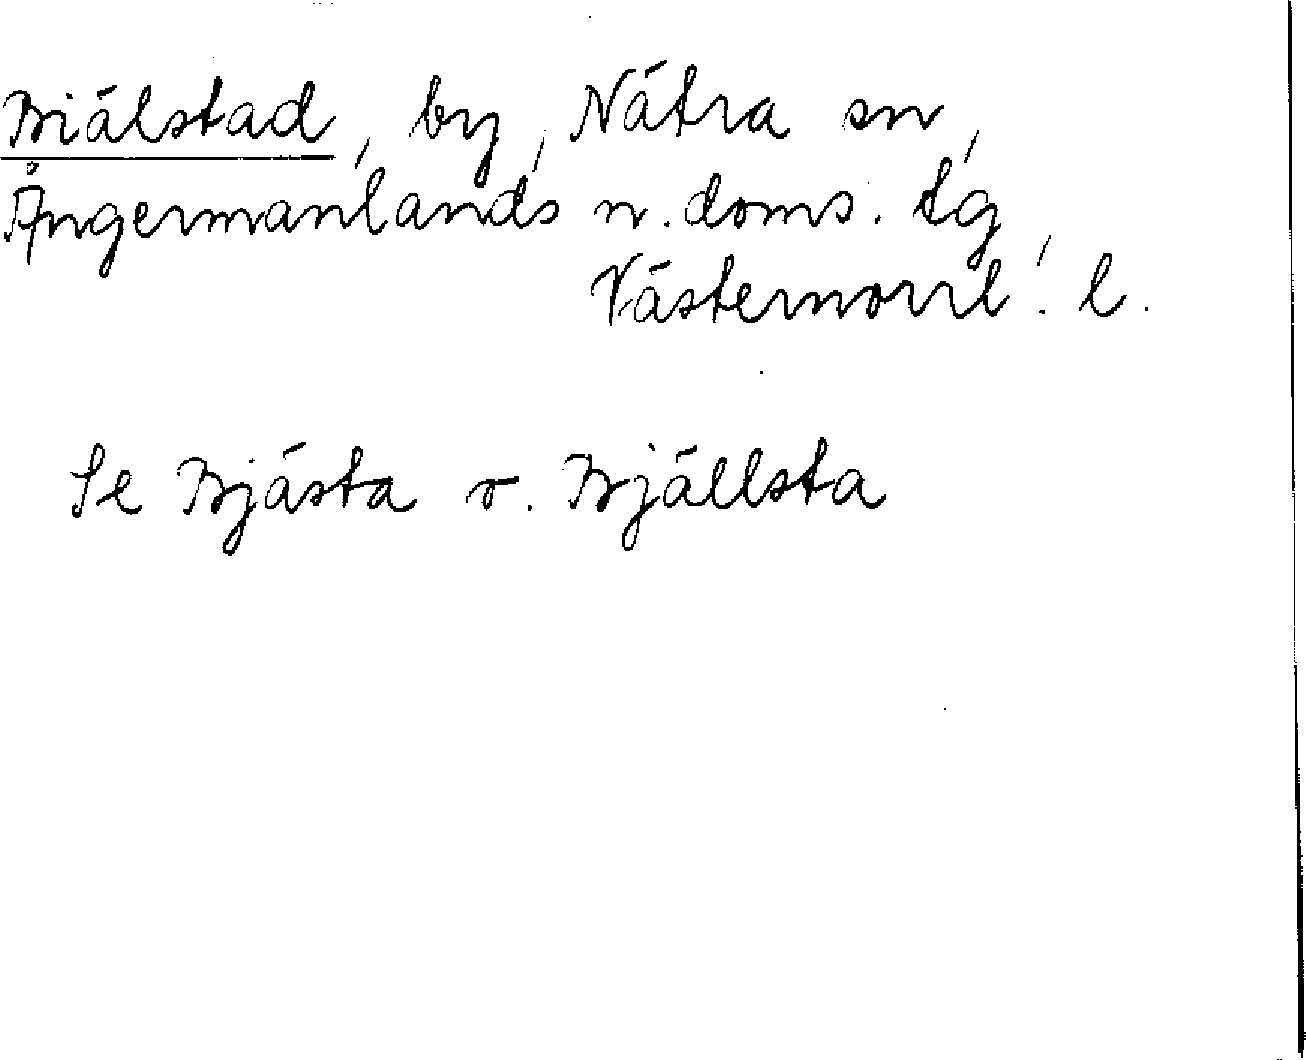 Biälstad, by, Nätra sn,
Ångermanlands n. doms. tg,
Västernorrl. l.
Se Bjästa o. Bjällsta